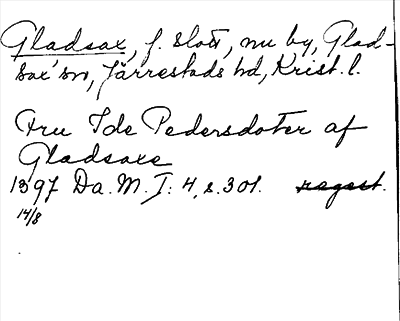 Gladsax, f. slott, nu by, Glad-
sax' sn, Järrestads hd, Krist. l.
Fru Ide Pedersdoter af
Gladsaxe
1397 Da. M. I: 4, s. 301. regest.
14/8